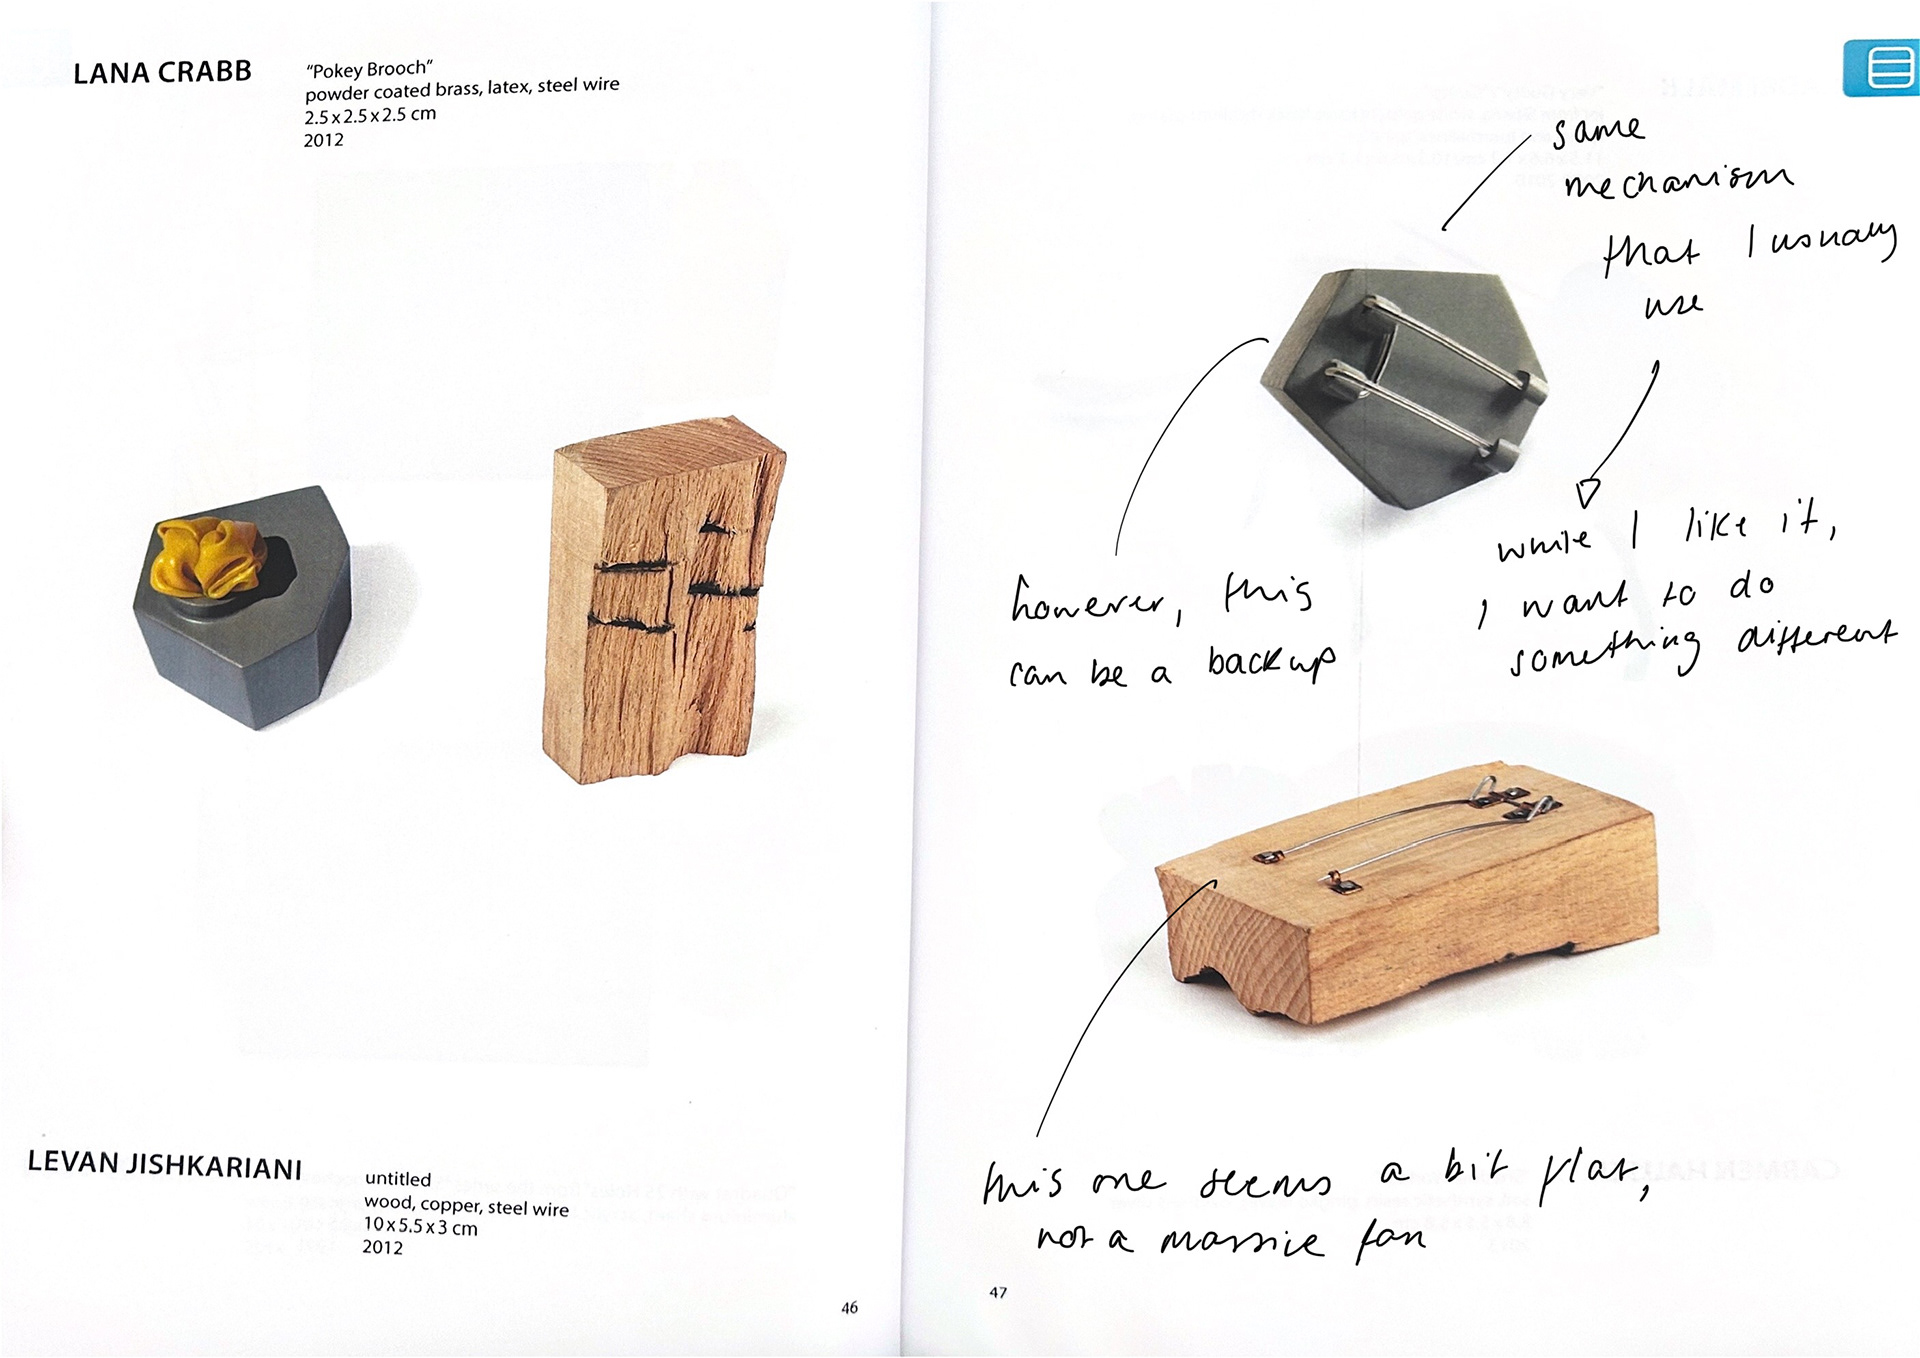 LANA CRABB
"Pokey Brooch"
powder coated brass, latex, steel wire
2.5 x 2.5 x 2.5 cm
2012
LEVAN JISHKARIANI
untitled
wood, copper, steel wire
10 x 5.5 x 3 cm
2012
46
same
mechanism
that I usually
use
while I like it,
I want to do
something different
however, this
can be a backup
this one seems a bit flat,
not a massive fan
47